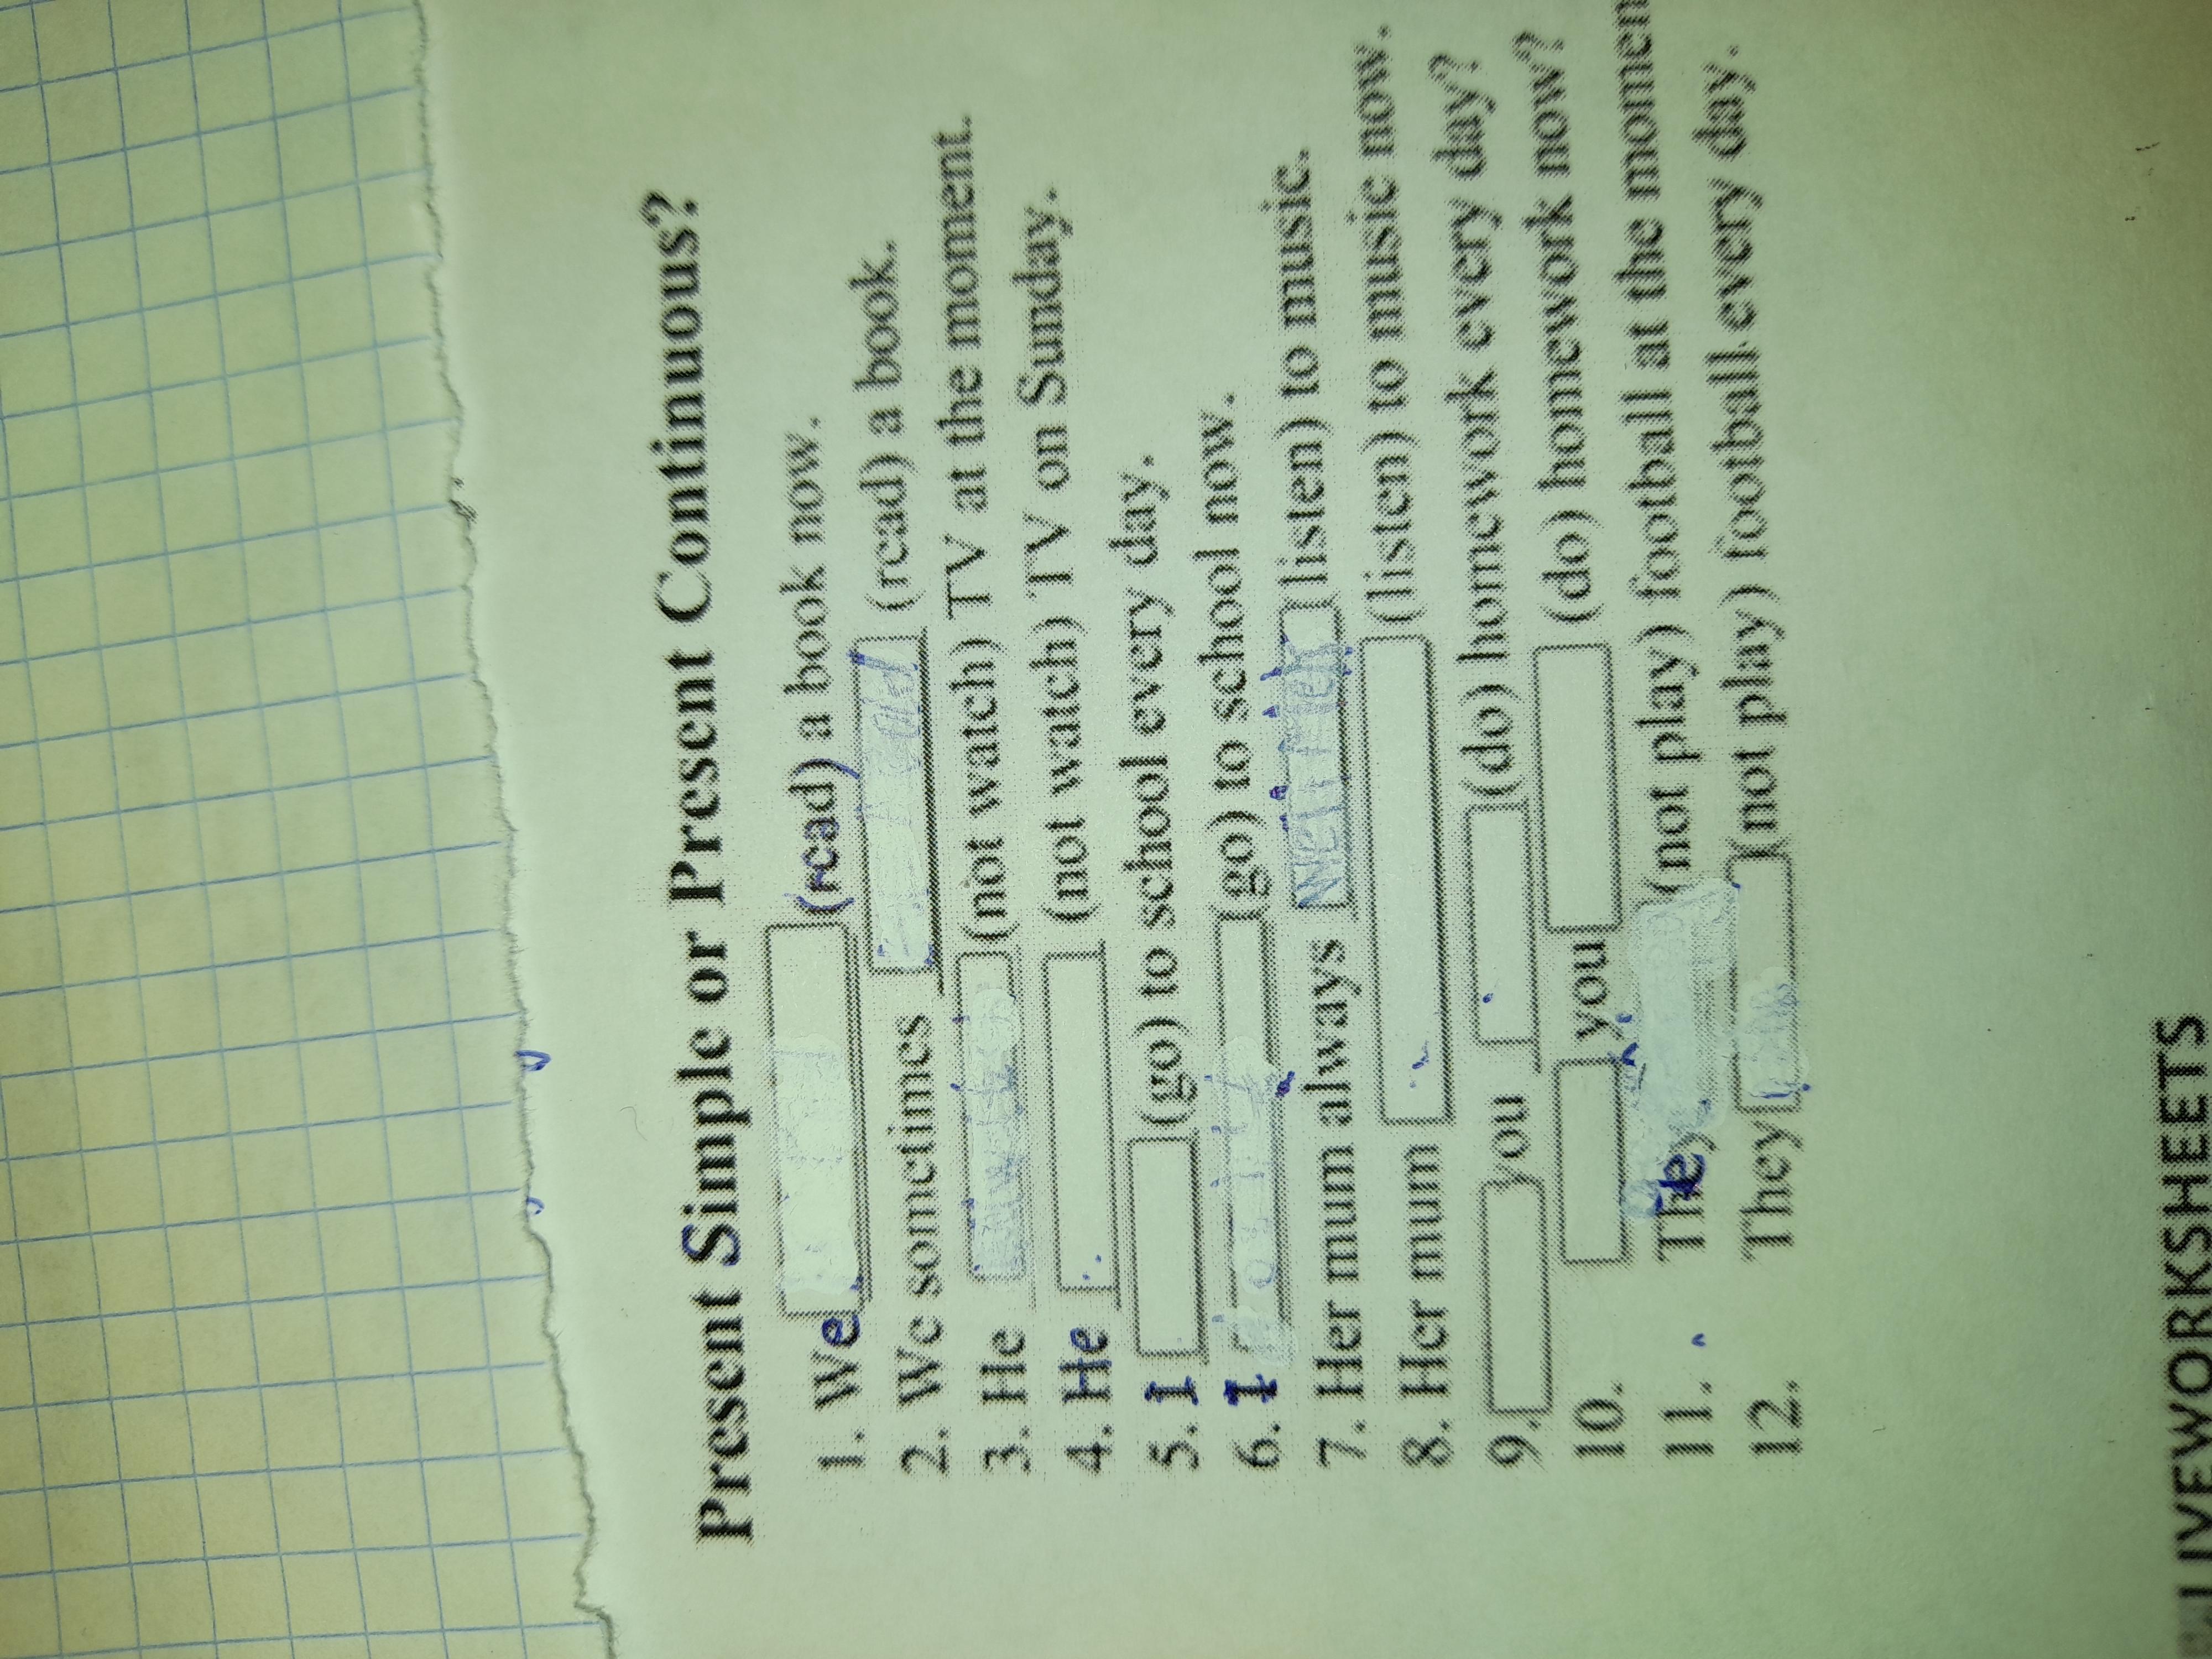 Present Simple or Present Continuous?
1. We (read) a book now.
2. We sometimes (read) a book.
3. He (not watch) TV at the moment.
4. He (not watch) TV on Sunday.
5. I (go) to school every day.
6. I (go) to school now.
7. Her mum always (listen) to music.
8. Her mum (listen) to music now.
9. you (do) homework every day?
10. you (do) homework now?
11. They (not play) football at the momen
12. They (not play) football every day.
LIVEWORKSHEETS